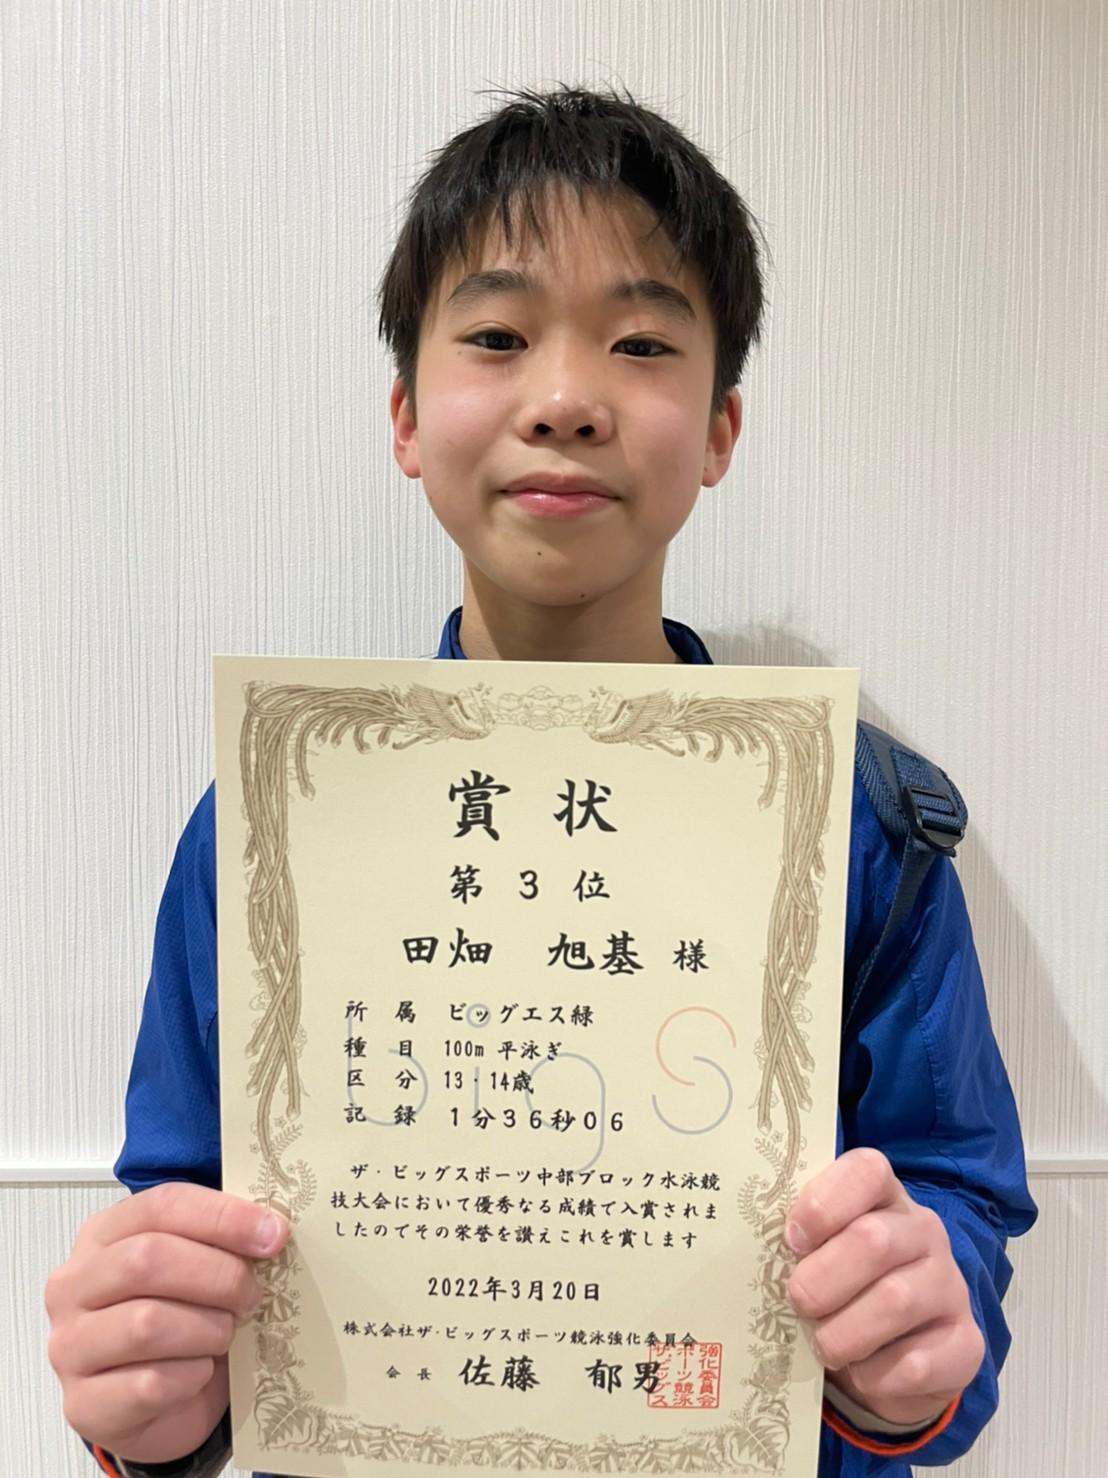 賞 状
第 3 位
田畑 旭基 様
所 属 ビッグエス緑
種 目 100m 平泳ぎ
区 分 13・14歳
記 録 1分36秒06
big S
ザ・ビッグスポーツ中部ブロック水泳競
技大会において優秀なる成績で入賞されま
したのでその栄誉を讃えこれを賞します
2022年3月20日
株式会社ザ・ビッグスポーツ競泳強化委員会
会 長 佐藤 郁男
ザ・ビッグスポーツ競泳強化委員会